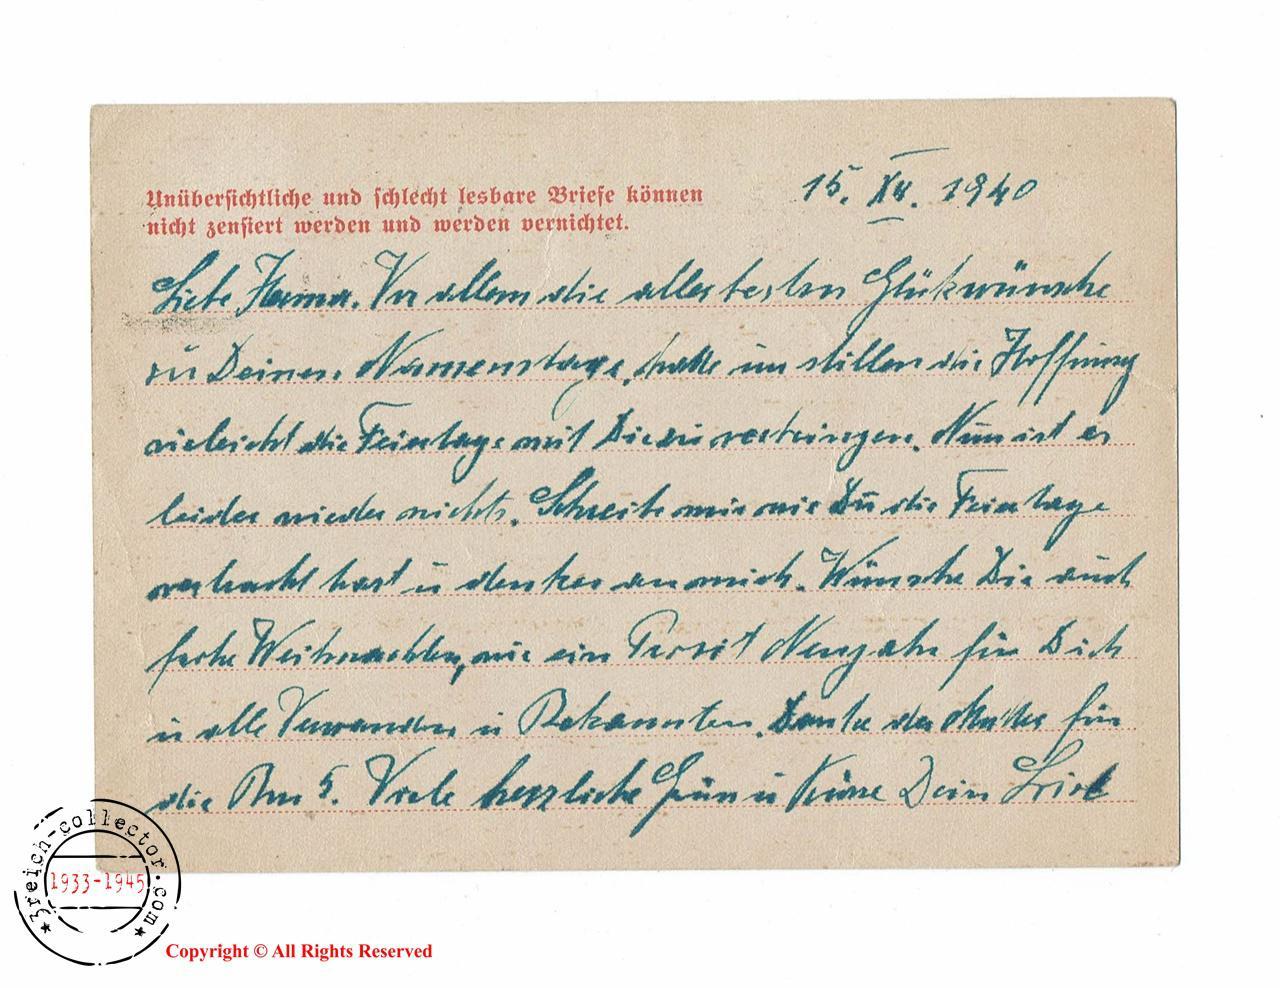 Unübersichtliche und schlecht lesbare Briefe können
nicht zensiert werden und werden vernichtet.
15. XII. 1940
Liebe Vor allem die allerbesten Glükwünsche
zu Deinem Namenstage, hatte im stillen die Hoffnung
vieleicht die Feiertage mit Dir zu verbringen. Nun ist es
leider wieder nichts. Schreibe mir wie Du die Feiertage
verbracht hast u denke an mich. Wünsche Dir auch
frohe Weihnachten, wie ein Prosit Neujahr für Dich
u alle Verwanden u Bekannten. Danke der Mutter für
die Rm 5. Viele herzliche Grüsse u Küsse Dein
3reich-collector.com
1933-1945
Copyright © All Rights Reserved